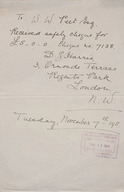 To W. W. Peet Esq
Received safely cheque for
£5.0.0 Cheque no. 9138.
D. S.
3, Ormonde Terrace
Regents Park
London
N.W.
Tuesday, November 7th 191